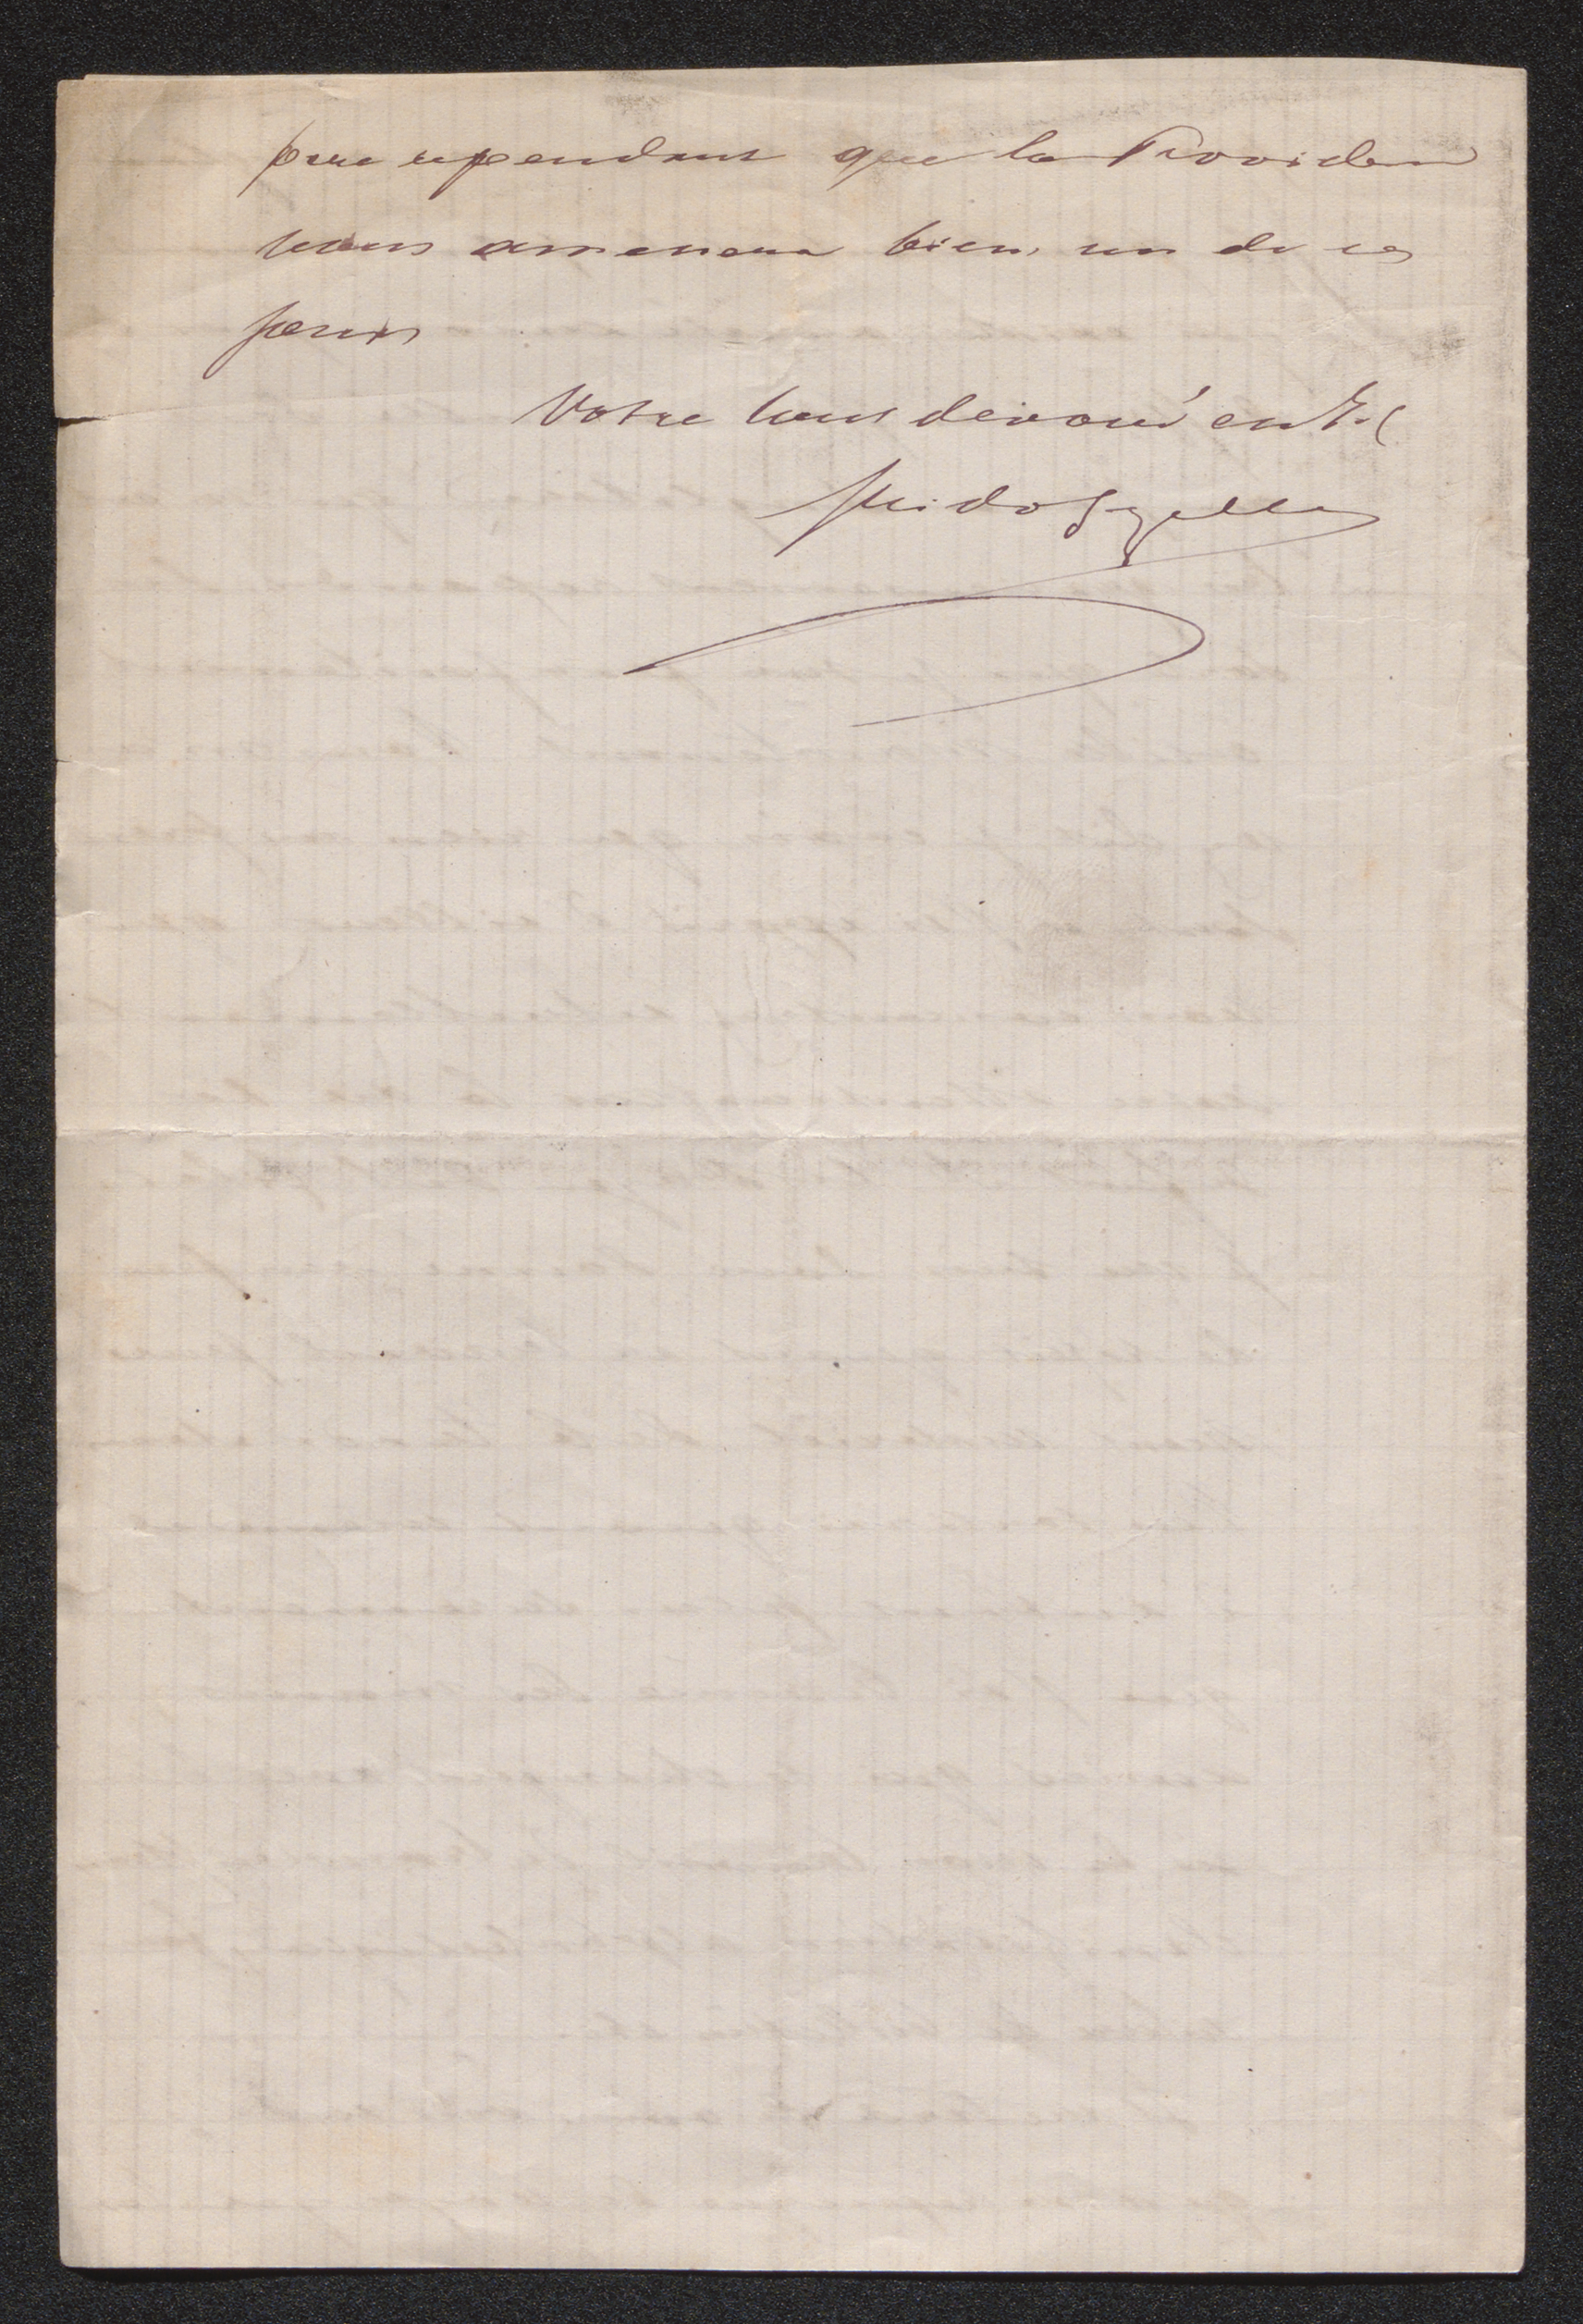 pere cependant que la Providen
vous amenera bien un de ces
jours
Votre tout dévoué en J.C
Guido Gezelle